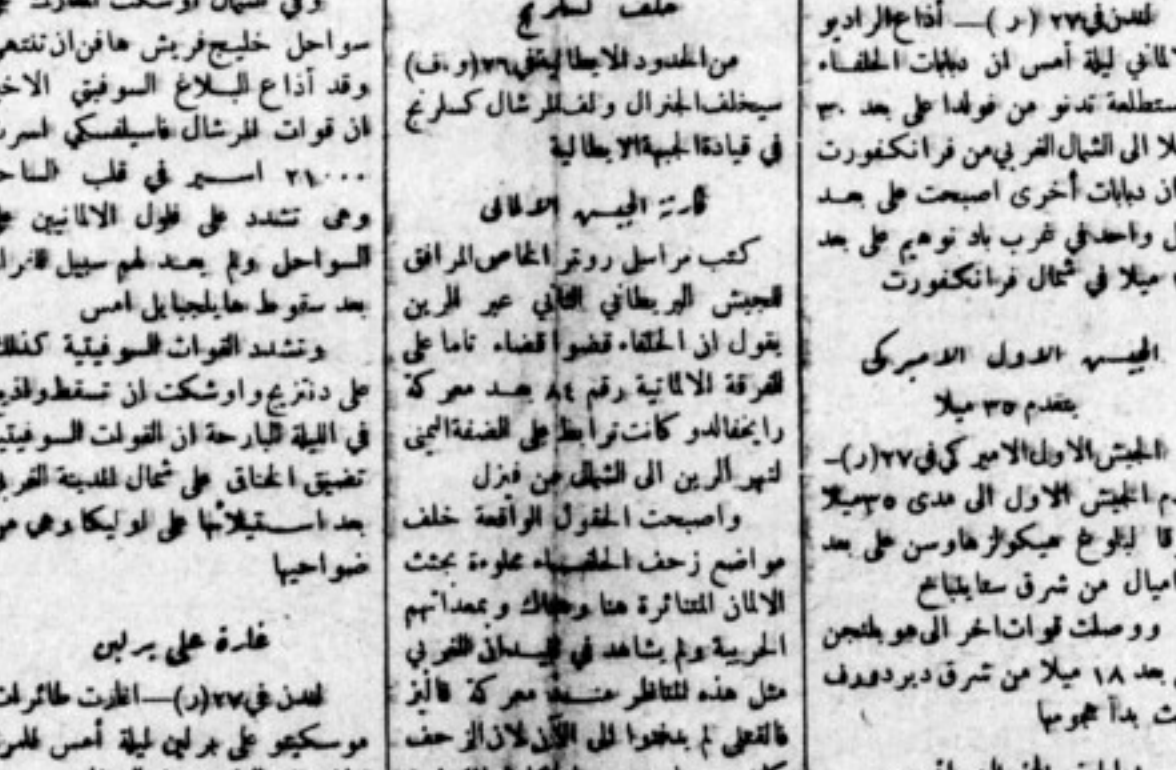 لندن في ٢٧ (ر) — أذاع الراديو
الماني ليلة أمس ان دبابات الحلفاء
ستطلعة تدنو من فولدا على بعد ٣٠
يلا الى الشمال الغربي من فرانكفورت
ان دبابات أخرى اصبحت على بعد
واحد في غرب باد نوهيم على بعد
ميلا في شمال فرانكفورت
الجيش الاول الاميركي
يتقدم ٣٥ ميلا
الجيش الاول الاميركي في ٢٧ (ر) —
الجيش الاول الى مدى ٣٥ ميلا
على بعد
اميال من شرق ستاينباخ
ووصلت قوات اخر الى
بعد ١٨ ميلا من شرق
بدأ هجومها
خلف كسلرنج
من الحدود الايطالية في ٢٦ (و.ف)
سيخلف الجنرال ولف المرشال كسلرنج
في قيادة الجبهة الايطالية
كارثة الجيش الالماني
كتب مراسل روتر الخاص المرافق
للجيش البريطاني الثاني عبر الرين
يقول ان الحلفاء قضوا قضاء تاما على
الفرقة الالمانية رقم ٨٤ بعد معركة
رايخفالدو كانت ترابط على الضفة اليمنى
لنهر الرين الى الشمال من فيزل
واصبحت الحقول الواقعة خلف
مواضع زحف الحلفاء مملوءة بجثث
الالمان المتناثرة هنا وهناك وبمعداتهم
الحربية ولم يشاهد في الميدان الغربي
مثل هذه المناظر منذ معركة فاليز
فالقتلى لم يدفنوا الى الآن لان الزحف
سواحل خليج فريش هافن ان تنتهي
وقد أذاع البلاغ السوفيتي الاخير
ان قوات المرشال فاسيلفسكي اسرت
٢١٠٠٠ اسير في قلب الساحل
وهى تشدد على فلول الالمانيين على
السواحل ولم يعد لهم سبيل للفرار
بعد سقوط هايلجنبايل امس
وتشدد القوات السوفيتية كذلك
على دنتزيج واوشكت ان تسقط
في الليلة البارحة ان القوات السوفيتية
تضيق الخناق على شمال المدينة الغربي
بعد استيلائها على اوليكا وهى من
ضواحيها
غارة على برلين
لندن في ٢٧ (ر) — اغارت طائرات
موسكيتو على برلين ليلة أمس